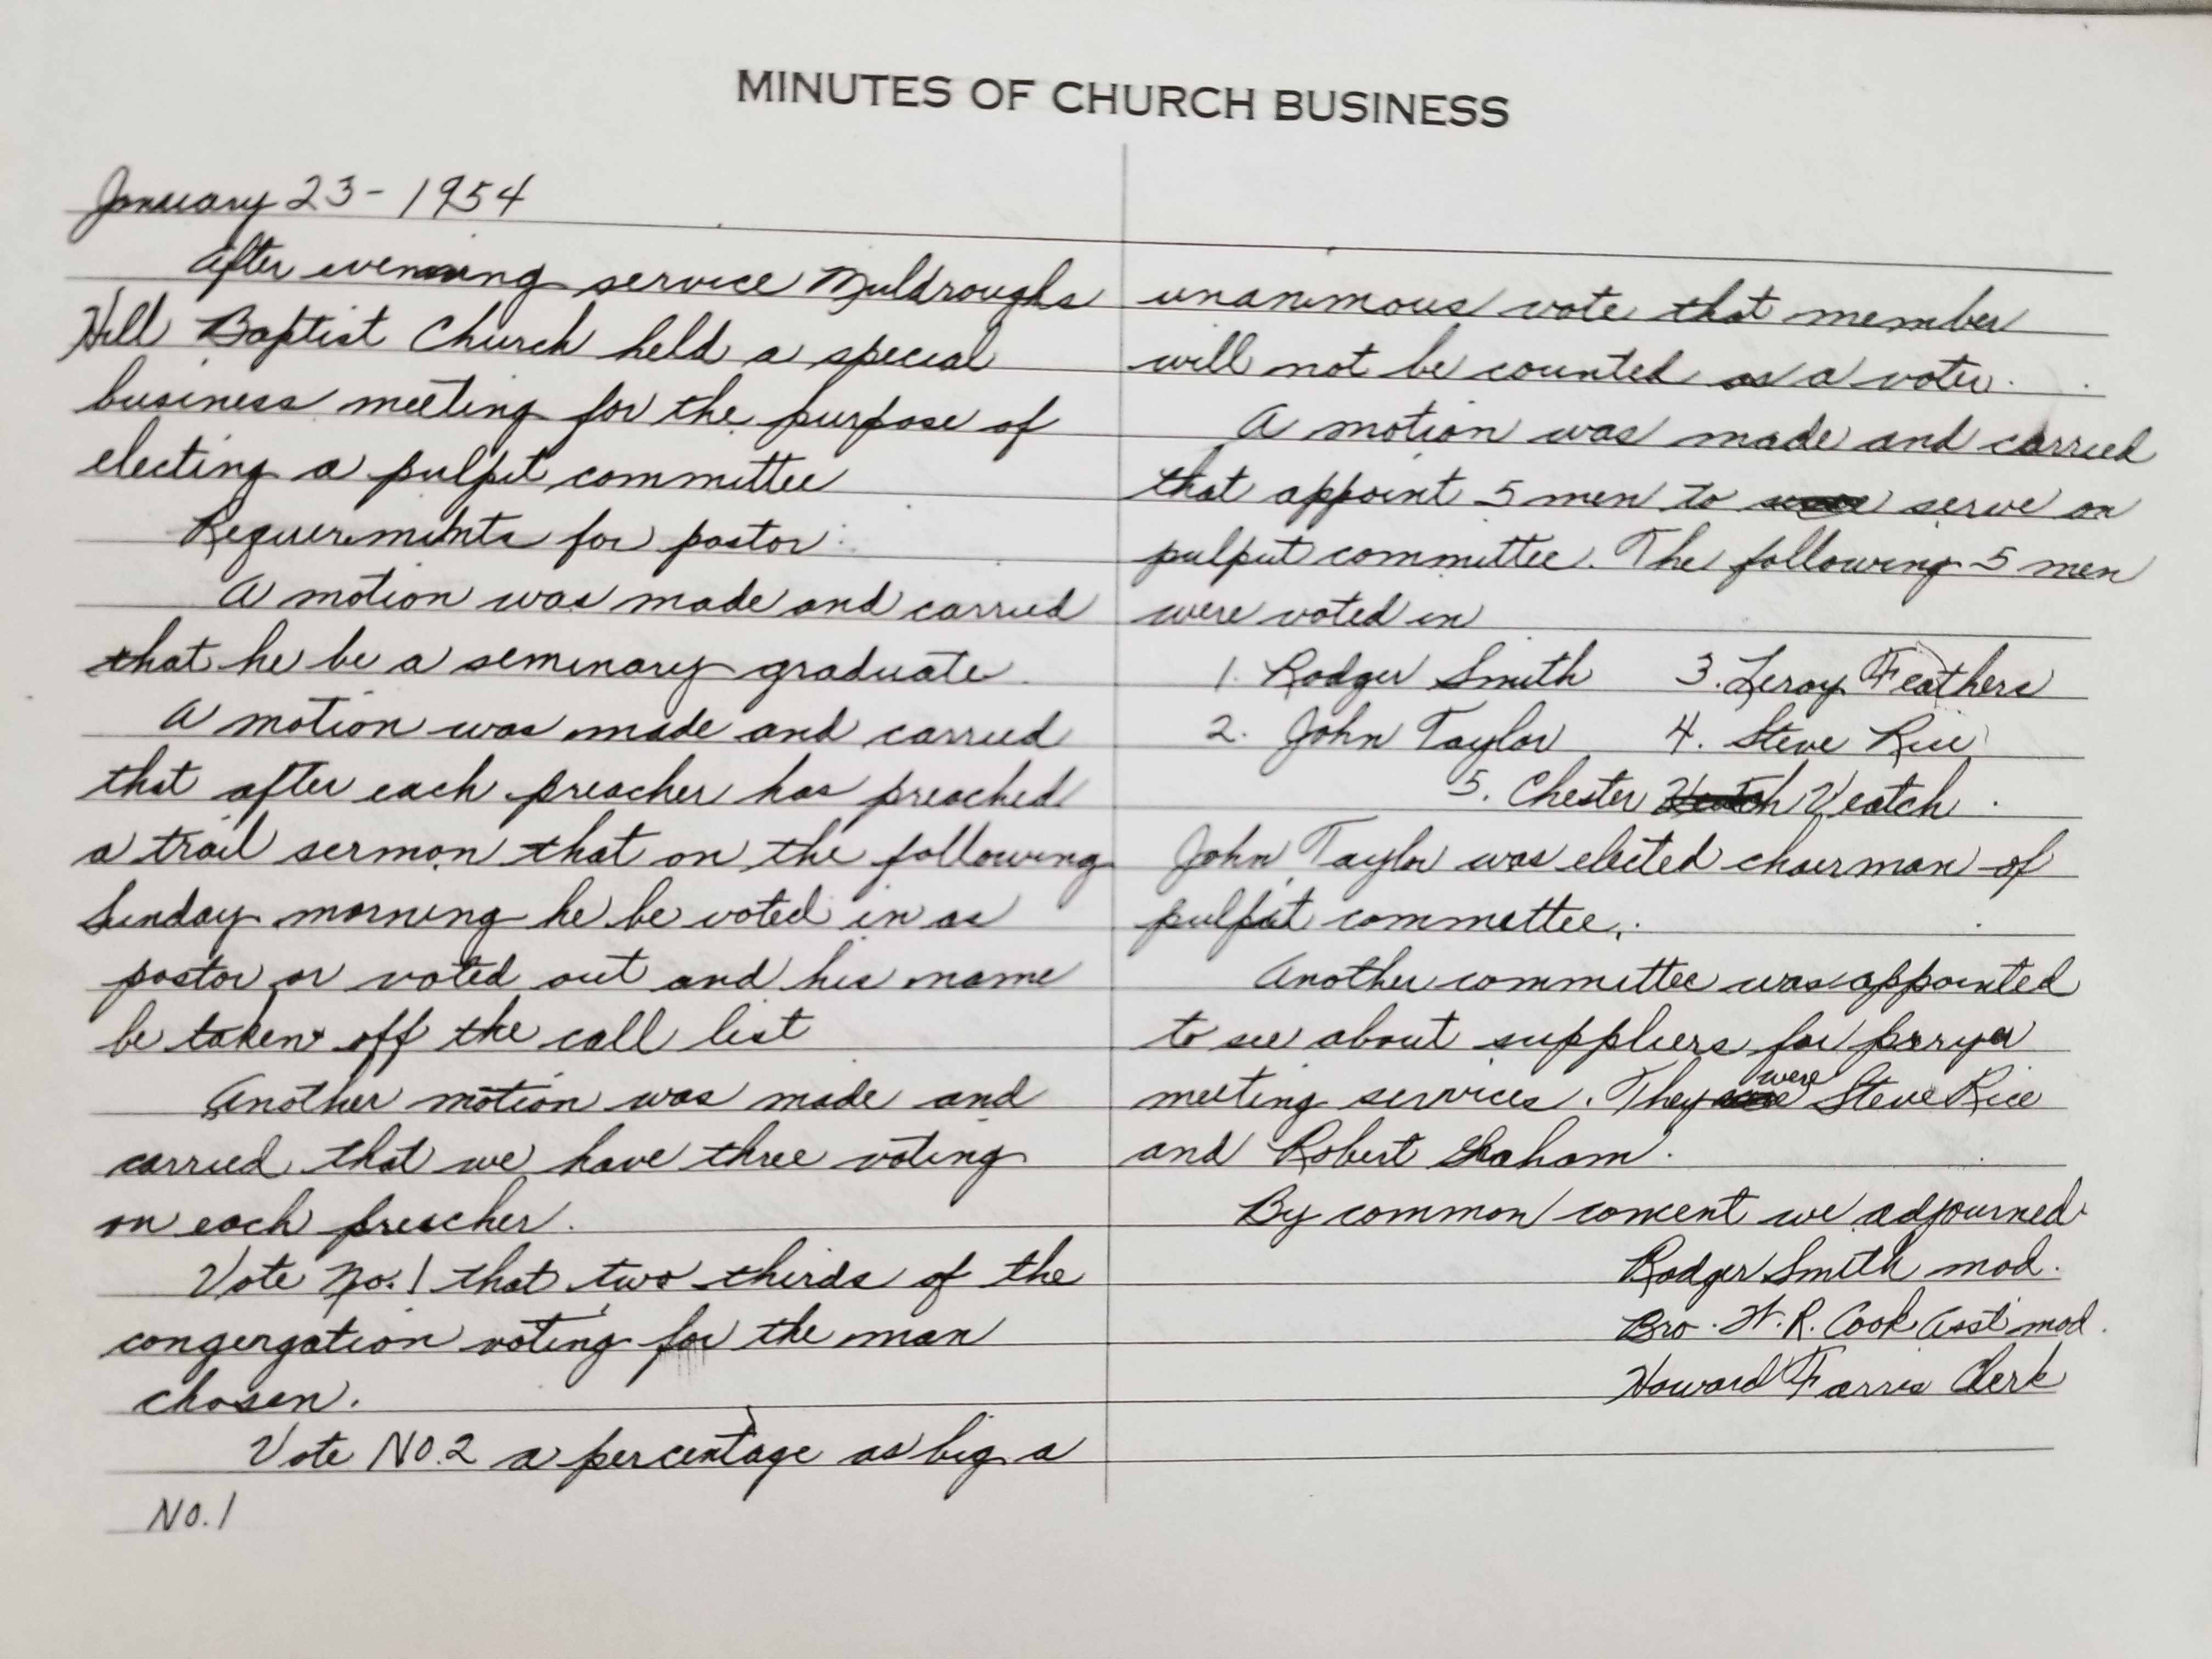 MINUTES OF CHURCH BUSINESS
January 23 - 1954
After evening service Muldroughs
Hill Baptist Church held a special
business meeting for the purpose of
electing a pulpit committee
Requerments for pastor:
A motion was made and carried
that he be a seminary graduate.
A motion was made and carried
that after each preacher has preached
a trail sermon that on the following
Sunday morning he be voted in as
pastor or voted out and his name
be taken off the call list
Another motion was made and
carried that we have three voting
on each preacher.
Vote No. 1 that two thirds of the
congergation voting for the man
chosen.
Vote NO. 2 a percentage as big a
NO. 1
unanimous vote that member
will not be counted as a voter.
A motion was made and carried
that appoint 5 men to serve on
pulput committee. The following 5 men
were voted in
1. Rodger Smith 3. Leroy Feathers
2. John Taylor 4. Steve Rice
5. Chester Veatch.
John Taylor was elected chairman of
pulpit committee.
Another committee was appointed
to see about suppliers for prryer
meeting services. They were Steve Rice
and Robert Graham.
By common concent we adjourned
Rodger Smith mod.
Bro. W. R. Cook Asst mod.
Howard Farris Clerk